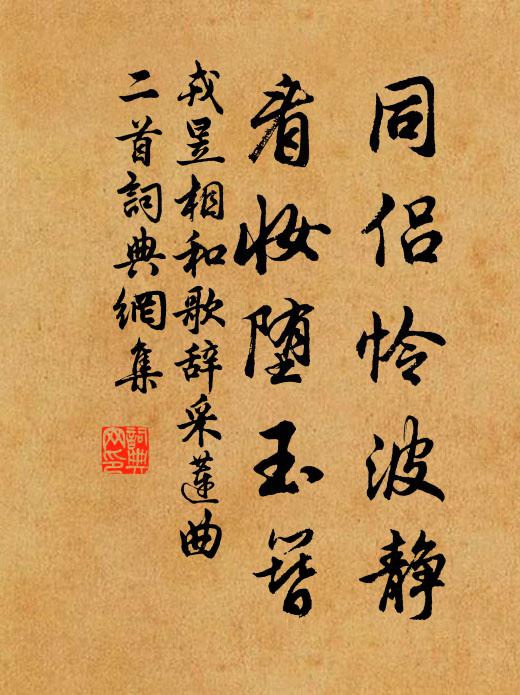 同侣怜波静
看妆堕玉簪
戎昱相和歌辞采蓮曲
二首詞典網集
詞典
网印